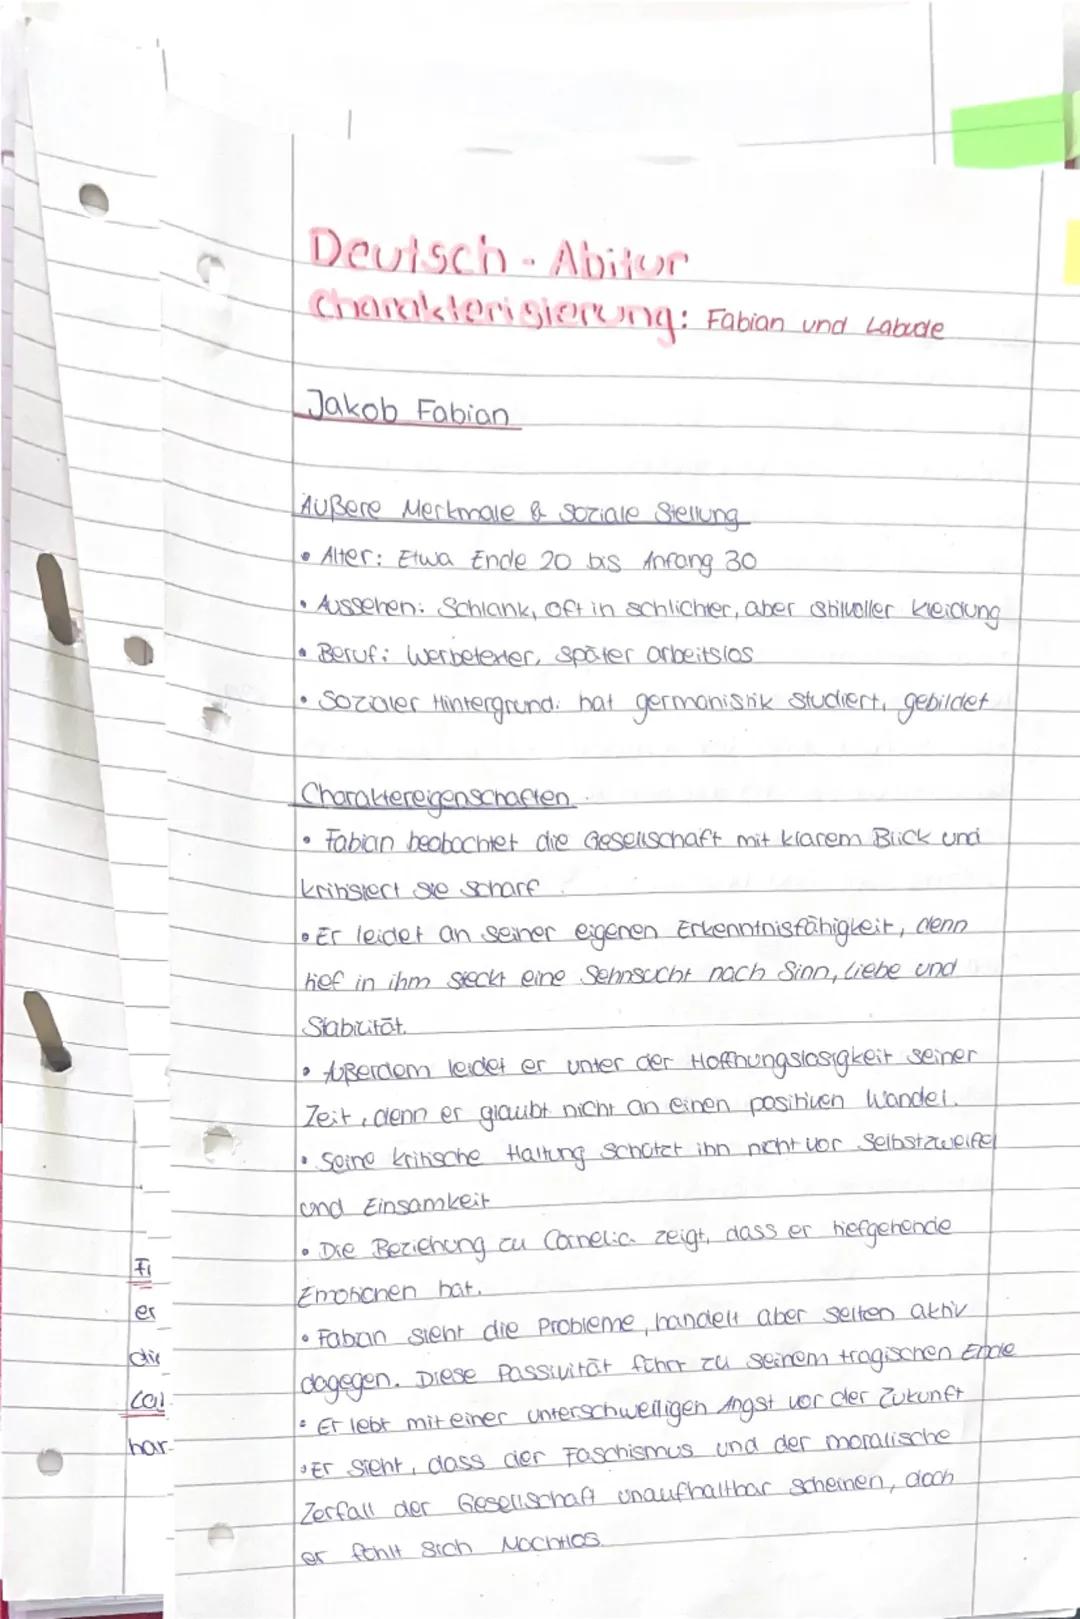 Deutsch - Abitur
Charakterisierung: Fabian und Labude
Jakob Fabian
Äußere Merkmale & soziale Stellung
• Alter: Etwa Ende 20 bis Anfang 30
• Aussehen: Schlank, oft in schlichter, aber stilvoller Kleidung
• Beruf: Werbetexter, später arbeitslos
• Sozialer Hintergrund: hat germanistik studiert, gebildet
Charaktereigenschaften
• Fabian beobachtet die Gesellschaft mit klarem Blick und
kritisiert sie scharf
• Er leidet an seiner eigenen Erkenntnisfähigkeit, denn
tief in ihm steckt eine Sehnsucht nach Sinn, Liebe und
Stabilität.
• Außerdem leidet er unter der Hoffnungslosigkeit seiner
Zeit, denn er glaubt nicht an einen positiven Wandel.
• Seine kritische Haltung schützt ihn nicht vor Selbstzweifel
und Einsamkeit
• Die Beziehung zu Cornelia zeigt, dass er tiefgehende
Emotionen hat.
• Fabian sieht die Probleme, handelt aber selten aktiv
dagegen. Diese Passivität führt zu seinem tragischen Ende
• Er lebt mit einer unterschwelligen Angst vor der Zukunft
• Er sieht, dass der Faschismus und der moralische
Zerfall der Gesellschaft unaufhaltbar scheinen, doch
er fühlt sich Machtlos.
Fi
er
die
har-